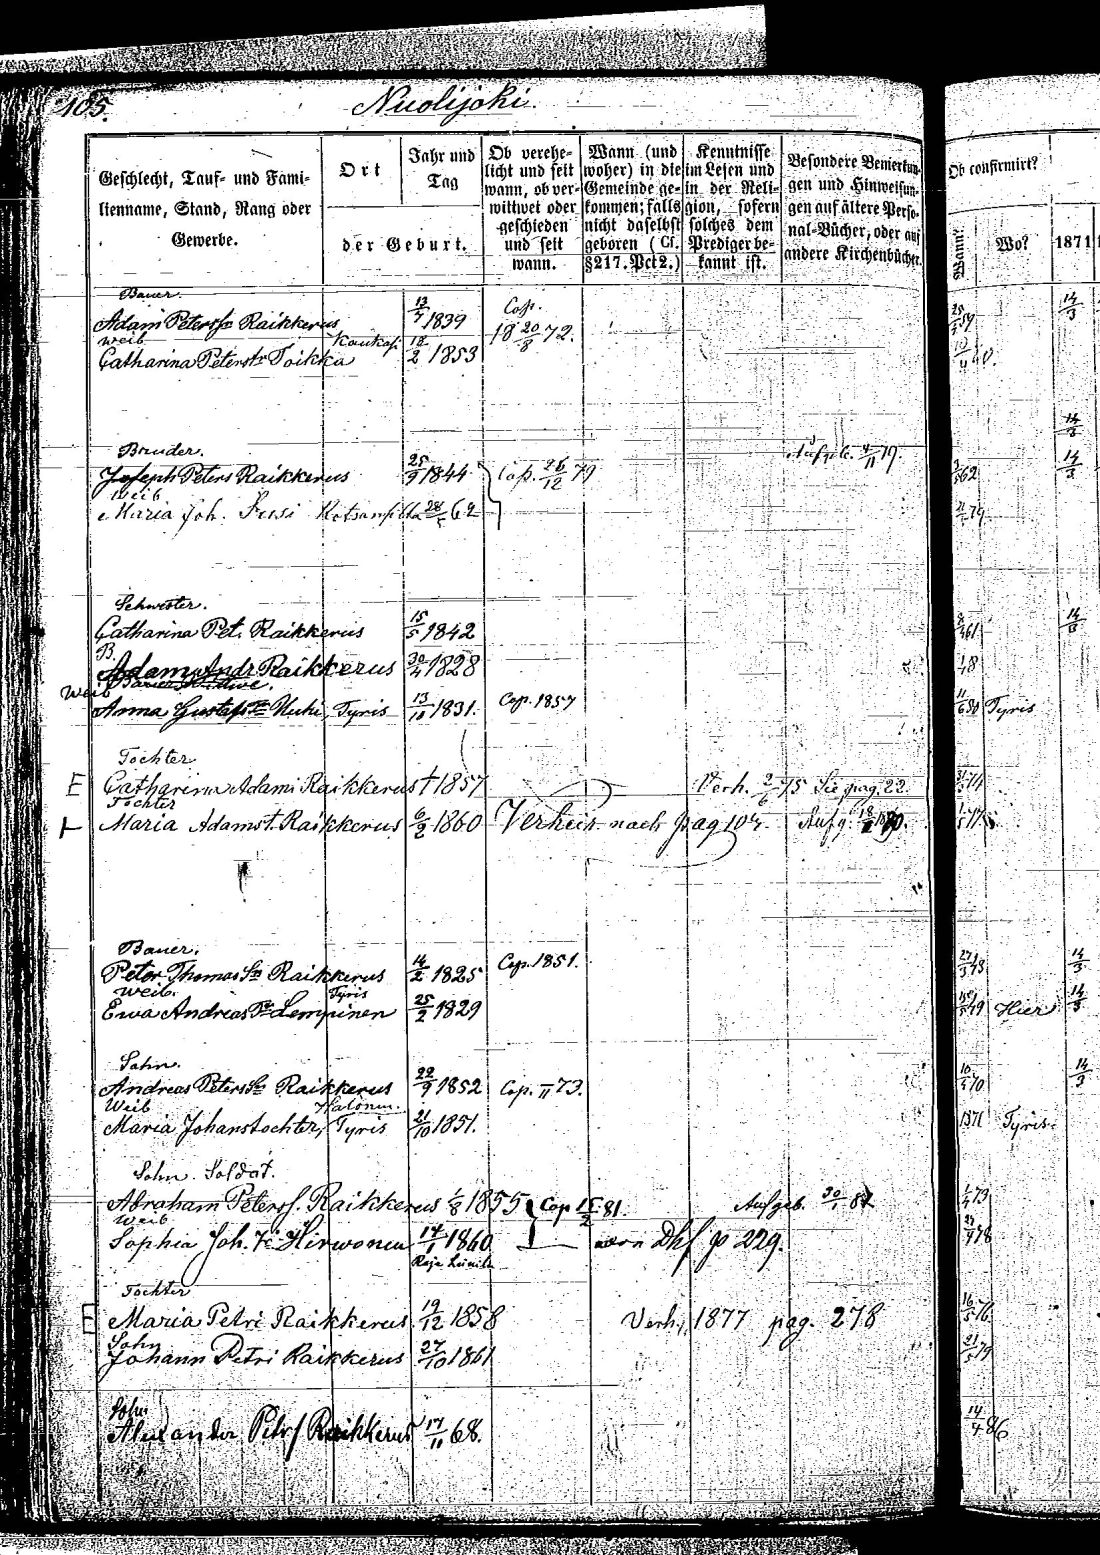 105.
Nuolijoki.
Geschlecht, Tauf- und Fami-
lienname, Stand, Rang oder
Gewerbe.
Ort
Jahr und
Tag
der Geburt.
Ob verehe-
licht und seit
wann, ob ver-
wittwet oder
geschieden
und seit
wann.
Wann (und
woher) in die
Gemeinde ge-
kommen; falls
nicht daselbst
geboren (Cf.
§217. Pct 2.)
Kenntnisse
im Lesen und
in der Reli-
gion, sofern
solches dem
Prediger be-
kannt ist.
Besondere Bemerkun-
gen und Hinweisun-
gen auf ältere Perso-
nal-Bücher, oder auf
andere Kirchenbücher.
Ob confirmirt?
Wann?
Wo?
1871
Bauer.
Adam Peterssn Raikkerus 13/7 1839 Cop. 14/3
Weib Kaukasi 18 20/8 72.
Catharina Peterstr Toikka 18/2 1853
14/3
Bruder. Aufgeb. 4/11 79.
Joseph Peters Raikkerus 25/9 1844 Cop. 26/12 79 14/3
Weib
Maria Joh. Susi 28/5 62
Schwester.
Catharina Pet. Raikkerus 15/5 1842 14/3
B.
Adam Andr Raikkerus 30/4 1828
Bauers Wittwe.
Weib
Anna Gustafstr Nuki, Tyris 13/10 1831. Cop. 1857 Tyris
Tochter
E Catharina Adami Raikkerus † 1857 Verh. 2/6 75 Sie pag. 22.
Tochter
Maria Adamst. Raikkerus 6/2 1860 Verheir. nach pag 104.
Bauer.
Peter Thomas Sn Raikkerus 14/2 1825 Cop. 1851. 14/3
Weib. Tyris
Ewa Andreas Tr Lempinen 25/2 1829 Hier 14/3
Sohn.
Andreas Peters Sn Raikkerus 22/9 1852 Cop. II 73. 14/3
Weib Halonen.
Maria Johanstochter, Tyris 21/10 1851. 1871 Tyris.
Sohn. Soldat.
Abraham Peterss. Raikkerus 1/8 1855 Cop 15/2 81. Aufgeb. 30/1 81
Weib
Sophia Joh. Tr Hirwonen 14/1 1860 p 229.
Tochter
E Maria Petri Raikkerus 19/12 1858 Verh. 1877 pag. 278 16/5 76
Sohn
Johann Petri Raikkerus 27/10 1861 21/5 79
Sohn
Alexander Petrs Raikkerus 17/11 68. 14/4 86